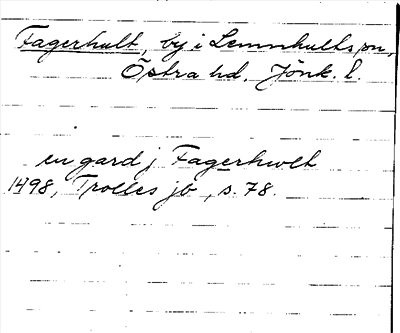 Fagerhult, by i Lemnhults sn,
Östra hd. Jönk. l.
en gard j Fagerhwlt
1498, Trolles jb, s. 78.